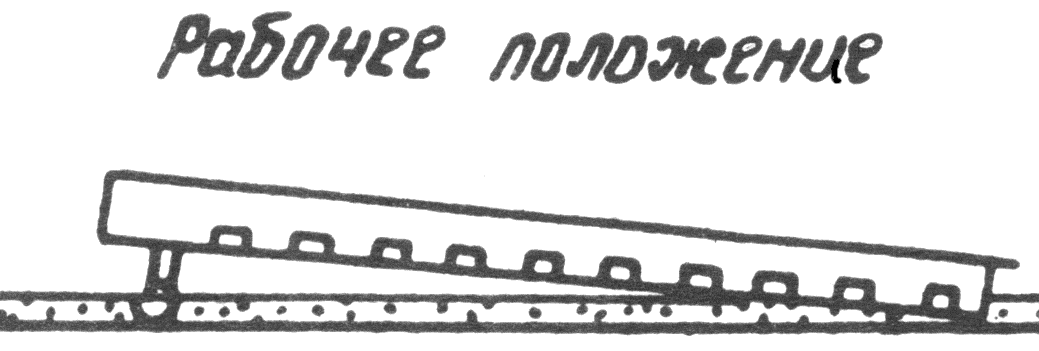 Рабочее положение